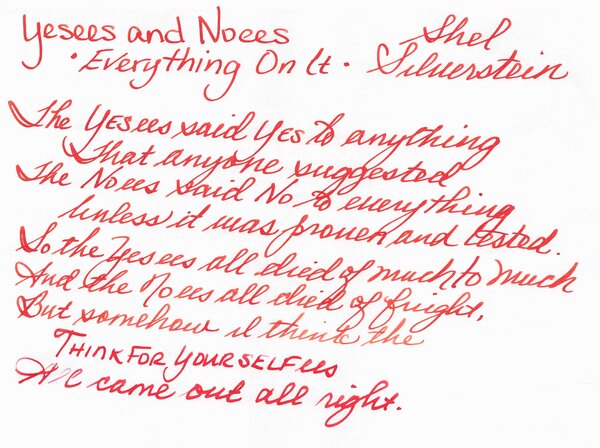 Yesees and Noees
• Everything On It •
Shel
Silverstein
The Yesees said yes to anything
That anyone suggested
The Noees said No to everything
Unless it was proven and tested.
So the Yesees all died of much to much
And the Noees all died of fright,
But somehow I think the
THINK FOR YOURSELFees
All came out all right.